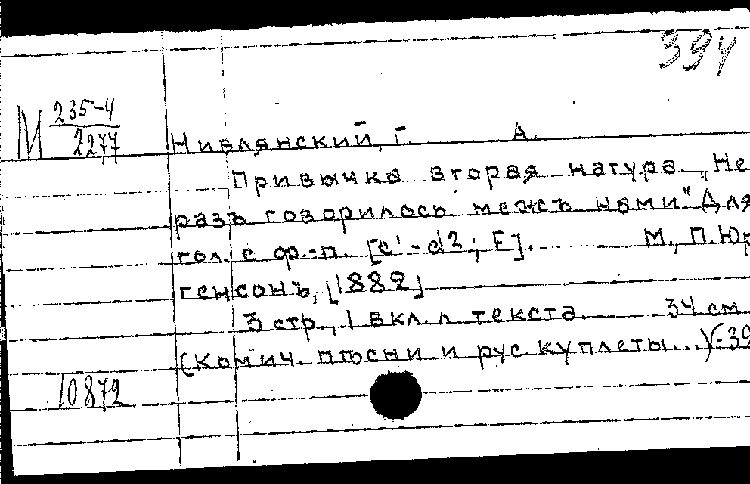 394
М 235-4
2277
Нивлянский, Г. А.
Привычка вторая натура. „Не
разъ говорилось межъ нами" Для
гол. с ф.-п. [c¹-d2; F]. М., П. Юр
генсонъ, [1882]
3 стр., 1 вкл. л. текста 34 см.
(Комич. пѣсни и рус. куплеты...)(-39
10872